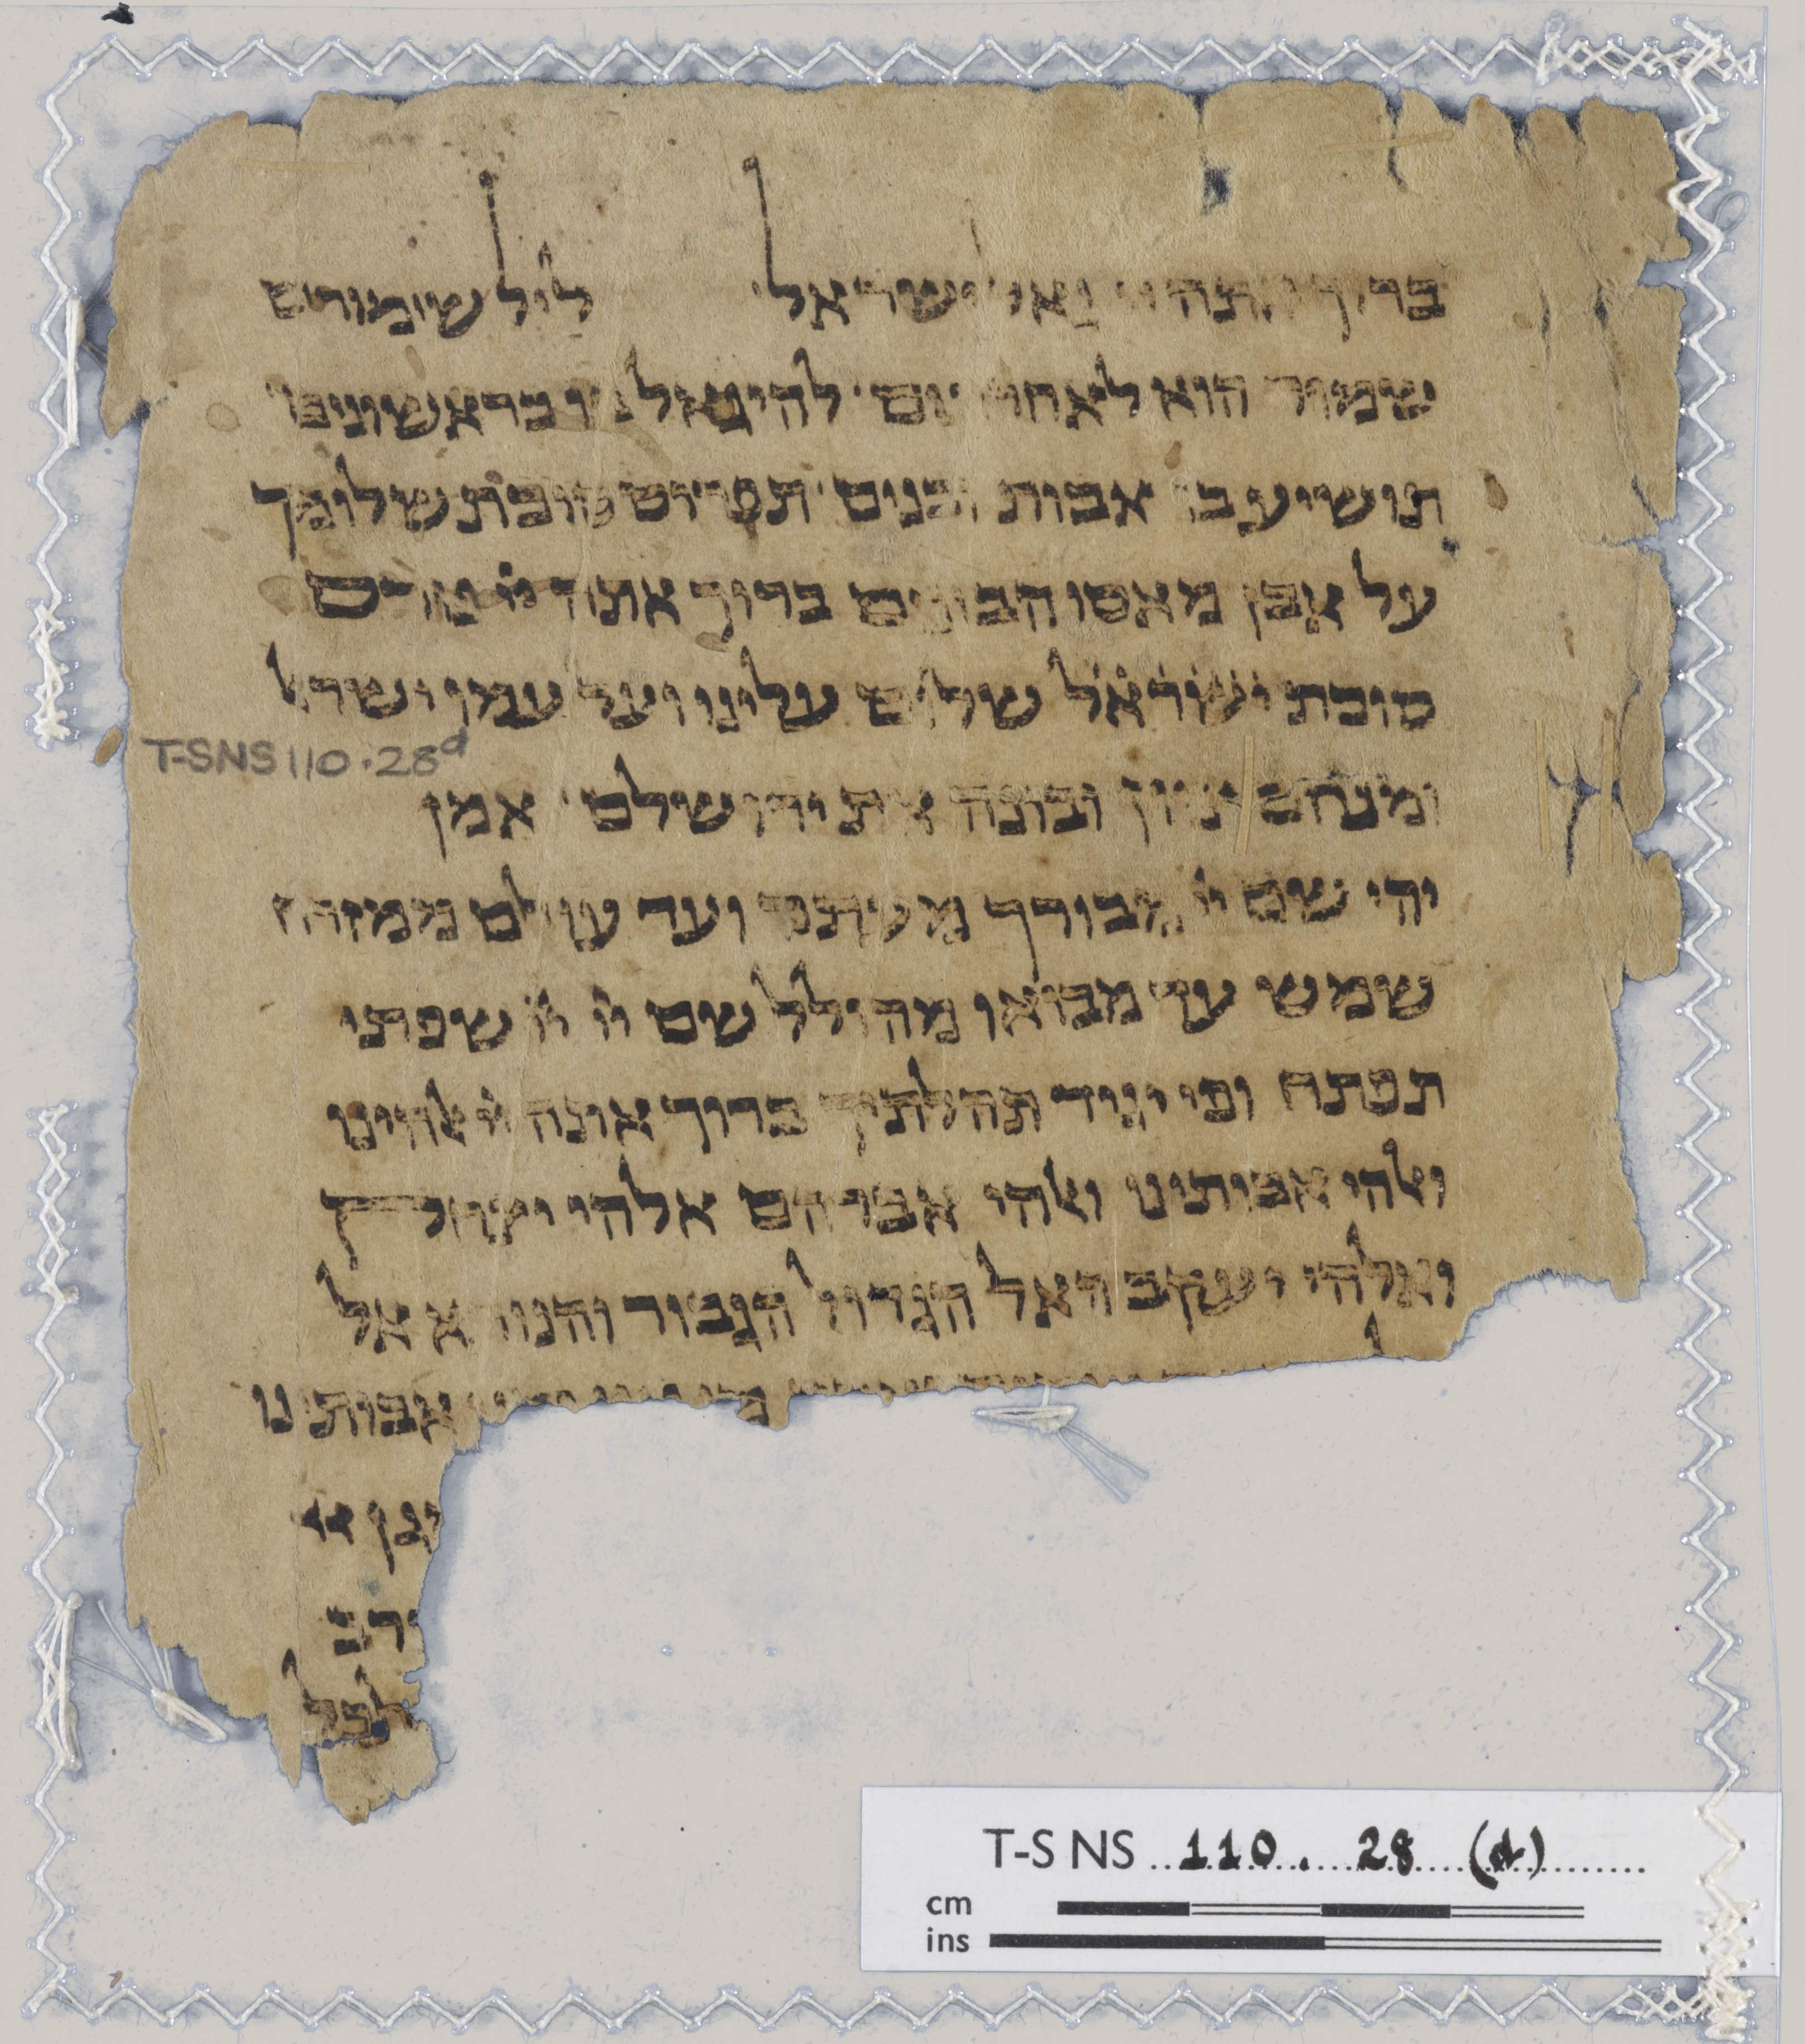 ברוך אתה יי גואל ישראל ליל שימורים
שמור הוא לאחרונים להיגאל בו כראשונים בו
תושיע בו אבות ובנים תפרוס סוכת שלומך
על אבן מאסו הבונים ברוך אתה יי פורס
סוכת ישראל שלום עלינו ועל עמו ישראל
ומנחם ציון ובונה את ירושלם אמן
יהי שם יי מבורך מעתה ועד עולם ממזרח
שמש עד מבואו מהולל שם יי יי שפתי
תפתח ופי יגיד תהלתיך ברוך אתה יי אלהינו
ואלהי אבותינו ואלהי אברהם אלהי יצחק
ואלהי יעקב האל הגדול הגבור והנורא אל
אבותינו
מגן
לכל
T-S NS 110.28d
T-S NS 110. 28 (d)
cm
ins